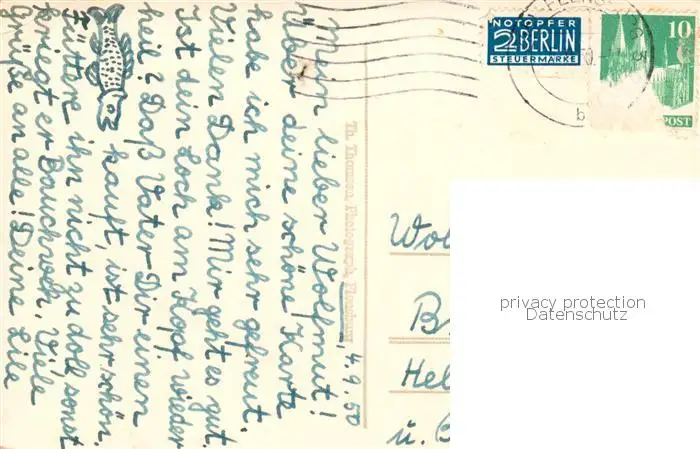 4.9.50
Mein lieber Wolfmut!
Über deine schöne Karte
habe ich mich sehr gefreut.
Vielen Dank! Mir geht es gut.
Ist dein Loch am Kopf wieder
heil? Daß Vater Dir einen
kauft, ist sehr schön.
Füttere ihn nicht zu doll, sonst
kriegt er Bauchweh. Viele
Grüße an alle! Deine Lile
Th. Thomsen, Photograph, Flensburg
NOTOPFER
2 BERLIN
STEUERMARKE
10
POST
b
Wol
B
Hel
u. B
privacy protection
Datenschutz